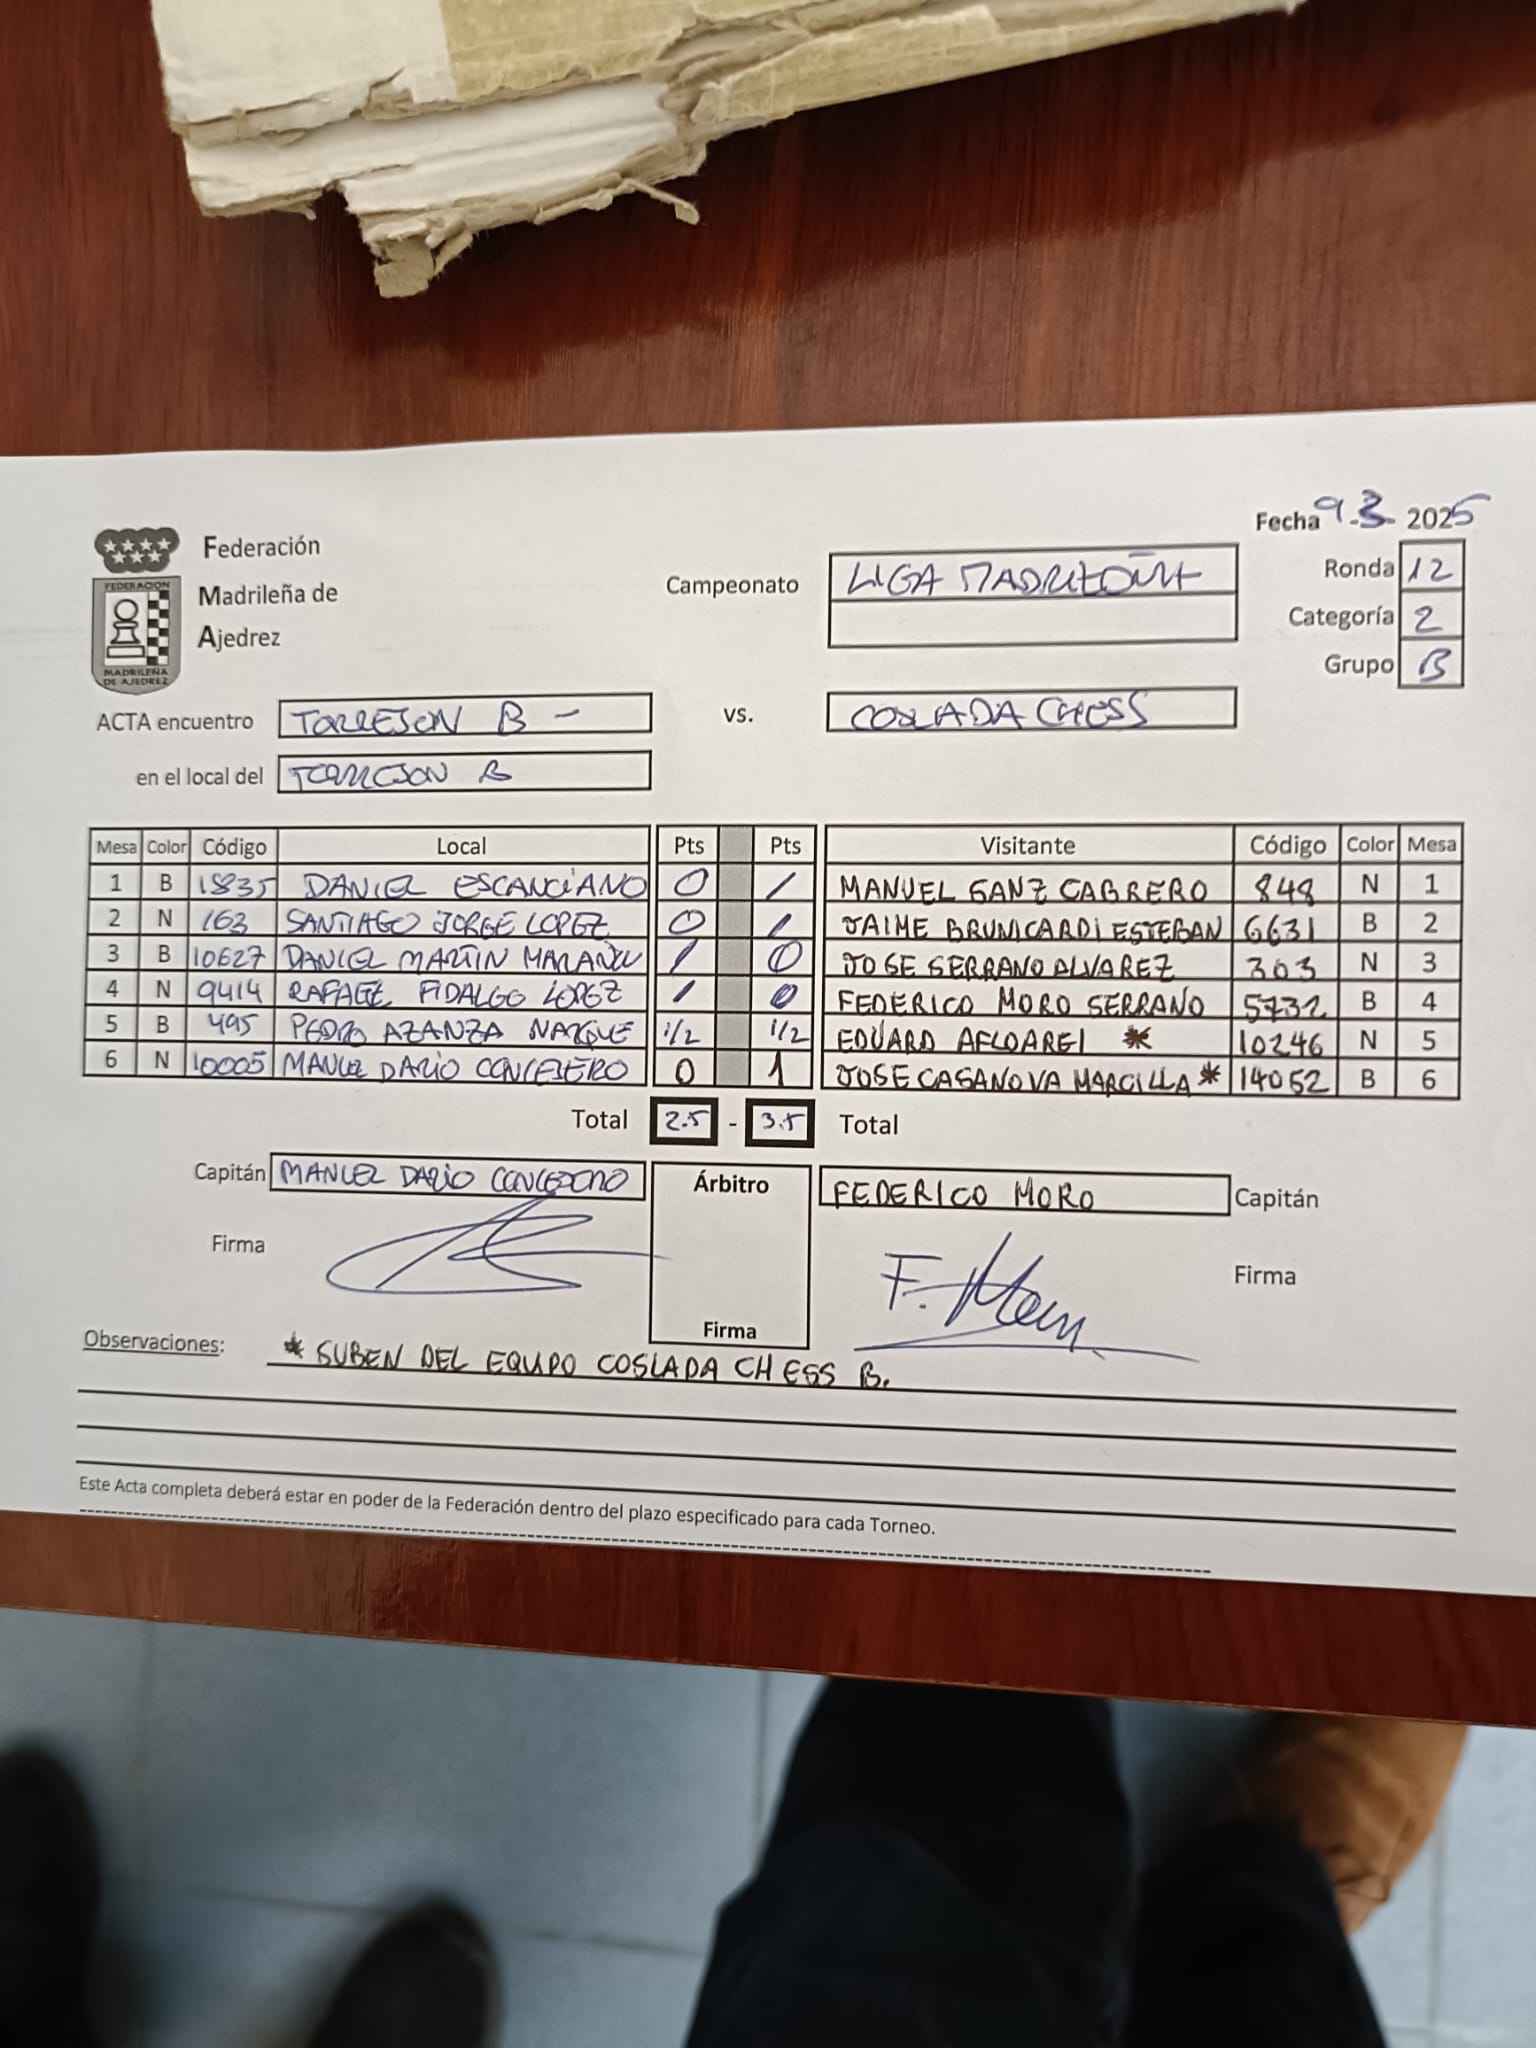 Fecha 9-3-2025
Federación
Madrileña de
Ajedrez
FEDERACION
MADRILEÑA
DE AJEDREZ
Campeonato LIGA MADRILEÑA
Ronda 12
Categoría 2
Grupo B
ACTA encuentro TORREJON B - vs. COSLADA CHESS
en el local del TORREJON B
Mesa Color Código Local Pts Pts Visitante Código Color Mesa
1 B 15835 DANIEL ESCANCIANO 0 1 MANUEL SANZ CABRERO 848 N 1
2 N 163 SANTIAGO JORGE LOPEZ 0 1 JAIME BRUNICARDI ESTEBAN 6631 B 2
3 B 10627 DANIEL MARTIN 1 0 JOSE SERRANO ALVAREZ 303 N 3
4 N 9414 RAFAEL FIDALGO LOPEZ 1 0 FEDERICO MORO SERRANO 5732 B 4
5 B 495 PEDRO AZANZA 1/2 1/2 EDUARD AFLOAREI * 10246 N 5
6 N 10005 MANUEL DARIO CONCEJERO 0 1 JOSE CASANOVA MARCILLA * 14052 B 6
Total 2.5 - 3.5 Total
Capitán MANUEL DARIO CONCEJERO Árbitro FEDERICO MORO Capitán
Firma F. Moro Firma
Firma
Observaciones: * SUBEN DEL EQUIPO COSLADA CHESS B.
Este Acta completa deberá estar en poder de la Federación dentro del plazo especificado para cada Torneo.